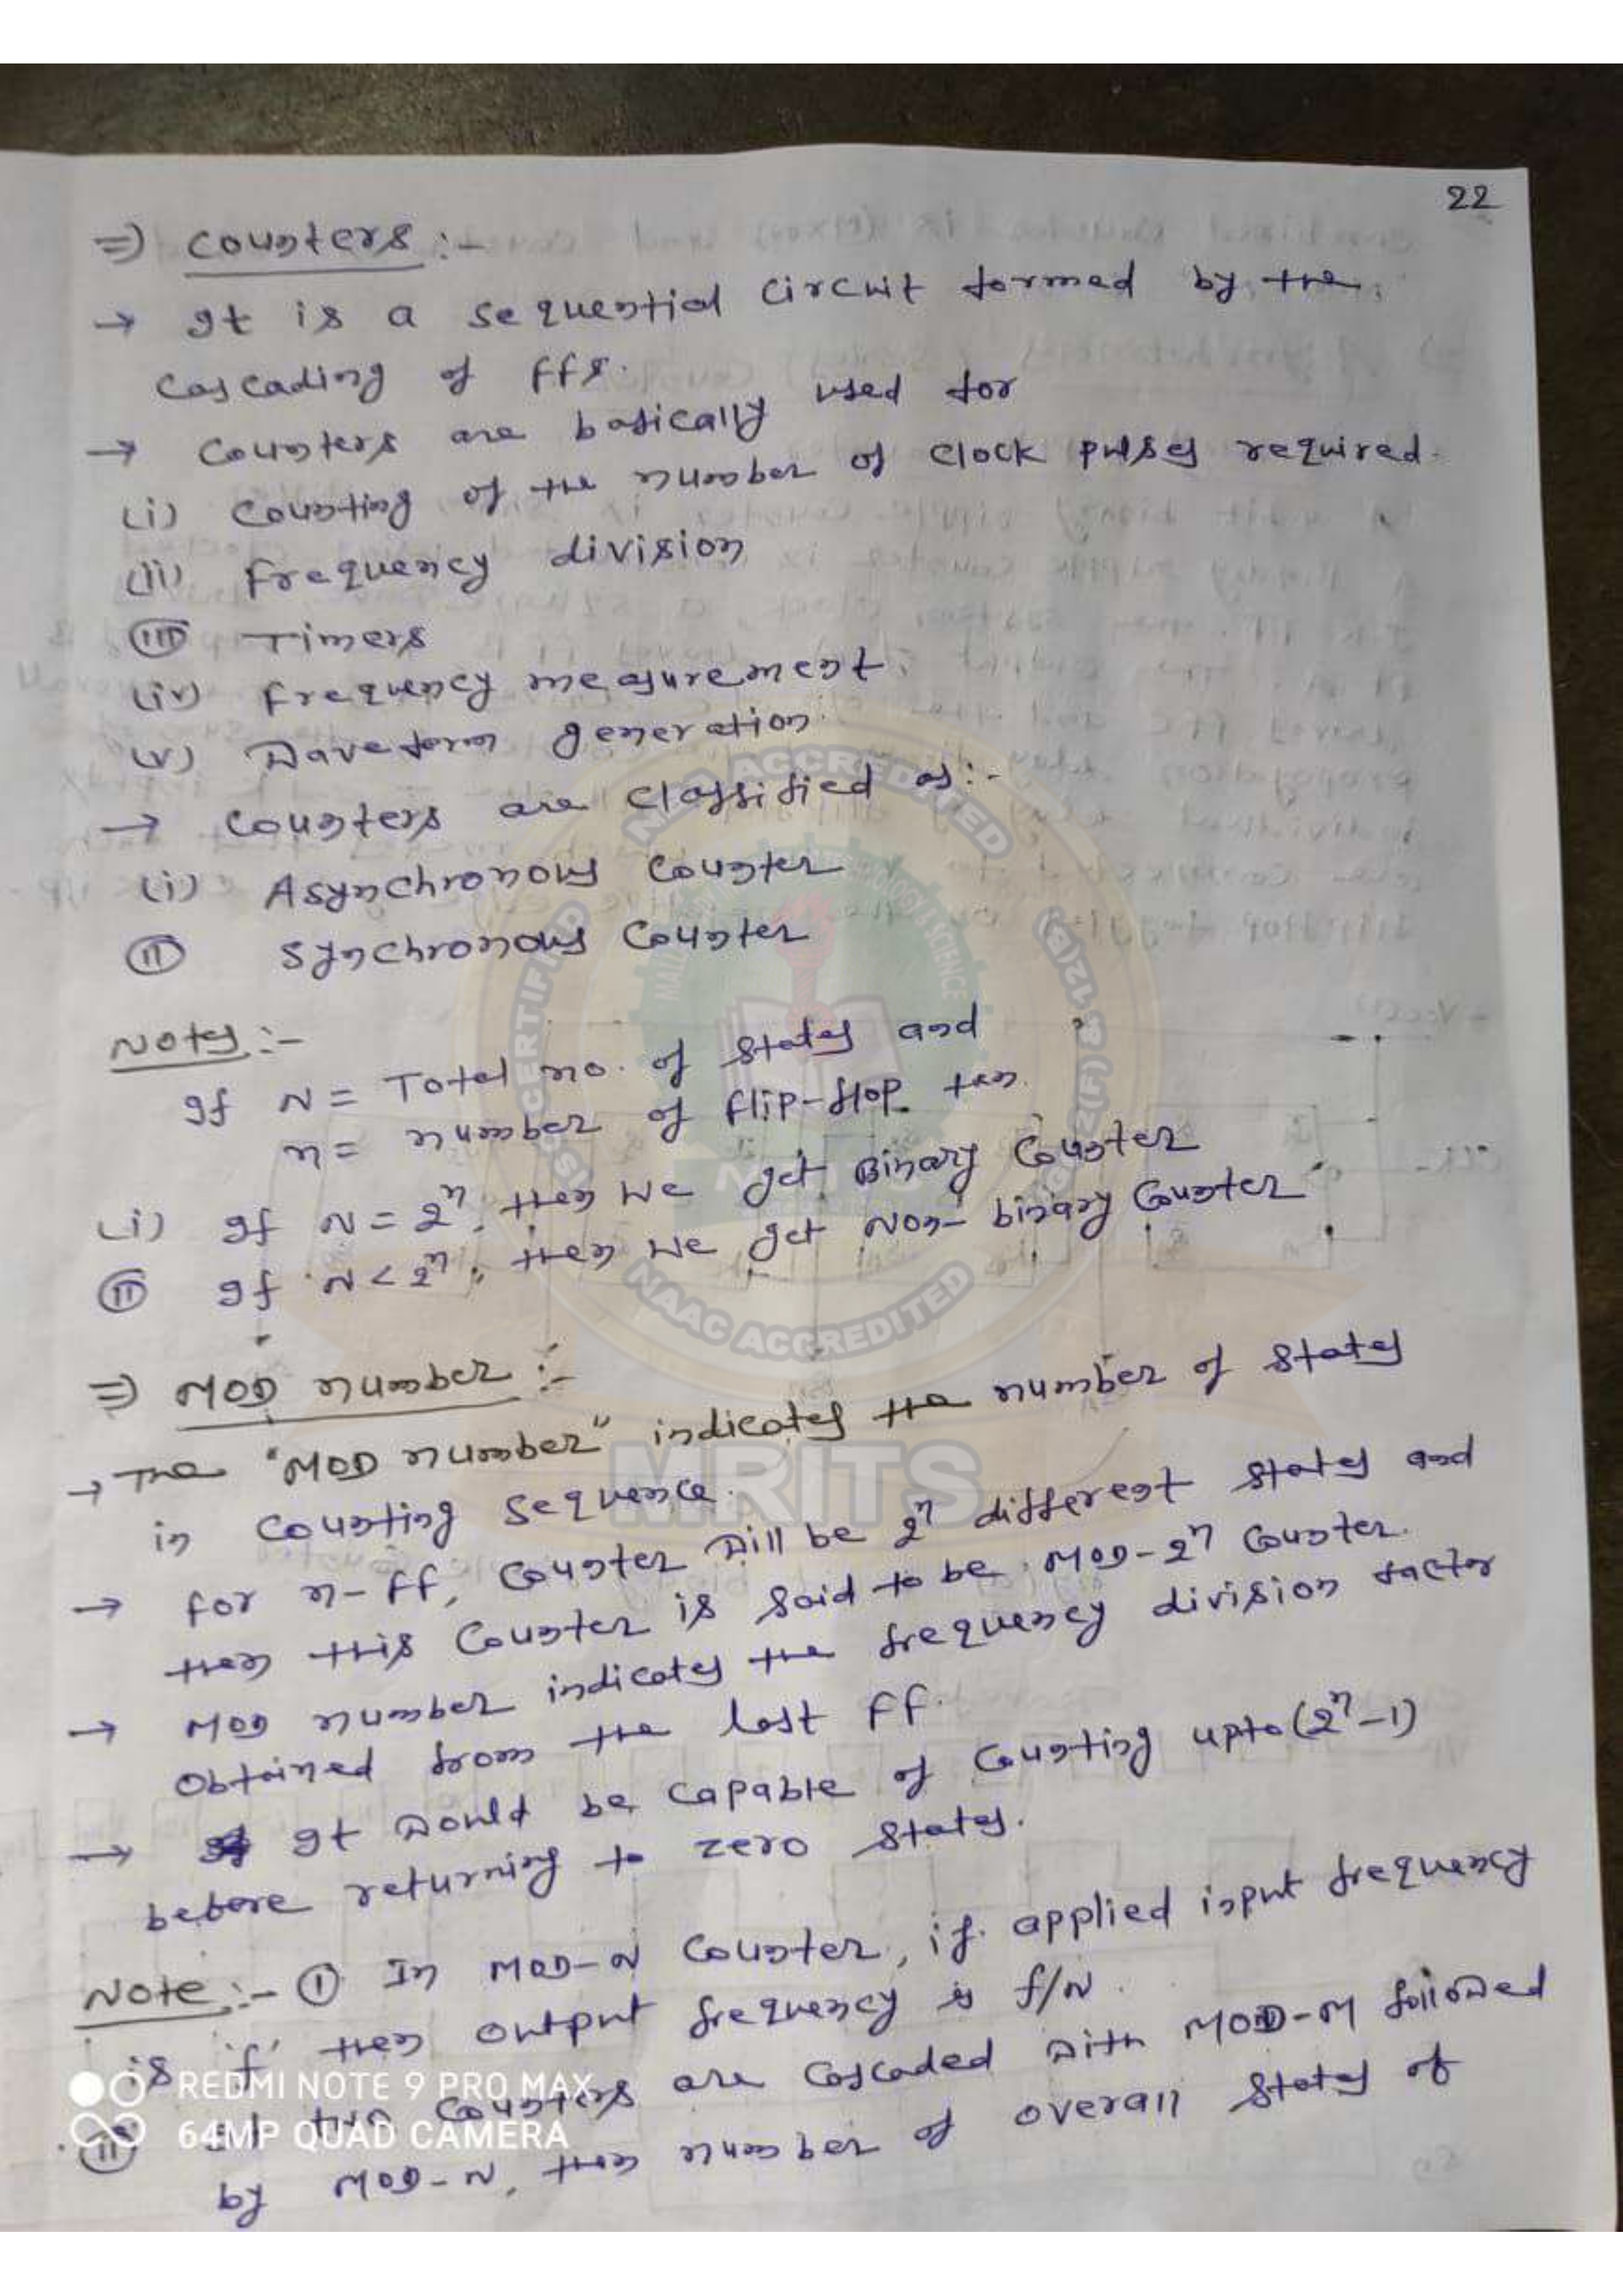 22
⇒ Counters :-
→ It is a sequential circuit formed by the
cascading of FFs.
→ Counters are basically used for
(i) Counting of the number of clock pulses required.
(ii) Frequency division
(iii) Timers
(iv) Frequency measurement.
(v) Waveform generation.
→ Counters are classified as:-
(i) Asynchronous Counter
(ii) Synchronous Counter
Notes :-
If N = Total no. of states and
n = number of flip-flop then
(i) If N = 2^n, then we get Binary Counter
(ii) If N < 2^n, then we get Non-binary Counter
⇒ MOD number :-
→ The "MOD number" indicates the number of states
in counting sequence.
→ for n-FF, Counter will be 2^n different states and
then this Counter is said to be MOD-2^n Counter.
→ MOD number indicates the frequency division factor
obtained from the last FF.
→ It would be capable of counting upto (2^n-1)
before returning to zero states.
Note :- (i) In MOD-N Counter, if applied input frequency
is 'f' then output frequency is f/N.
(ii) If two Counters are cascaded with MOD-M followed
by MOD-N, then number of overall states of
NAAC ACCREDITED
CERTIFIED
2(F) & 12(B)
NAAC ACCREDITED
MRITS
REDMI NOTE 9 PRO MAX
64MP QUAD CAMERA